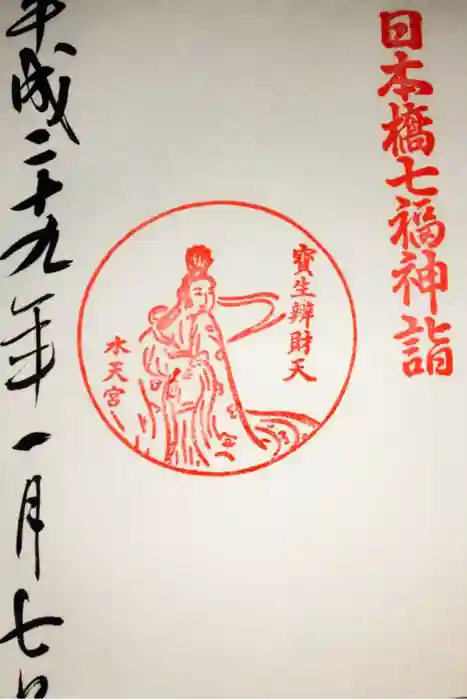 日本橋七福神詣
寶生辨財天
水天宮
平成二十九年一月七日